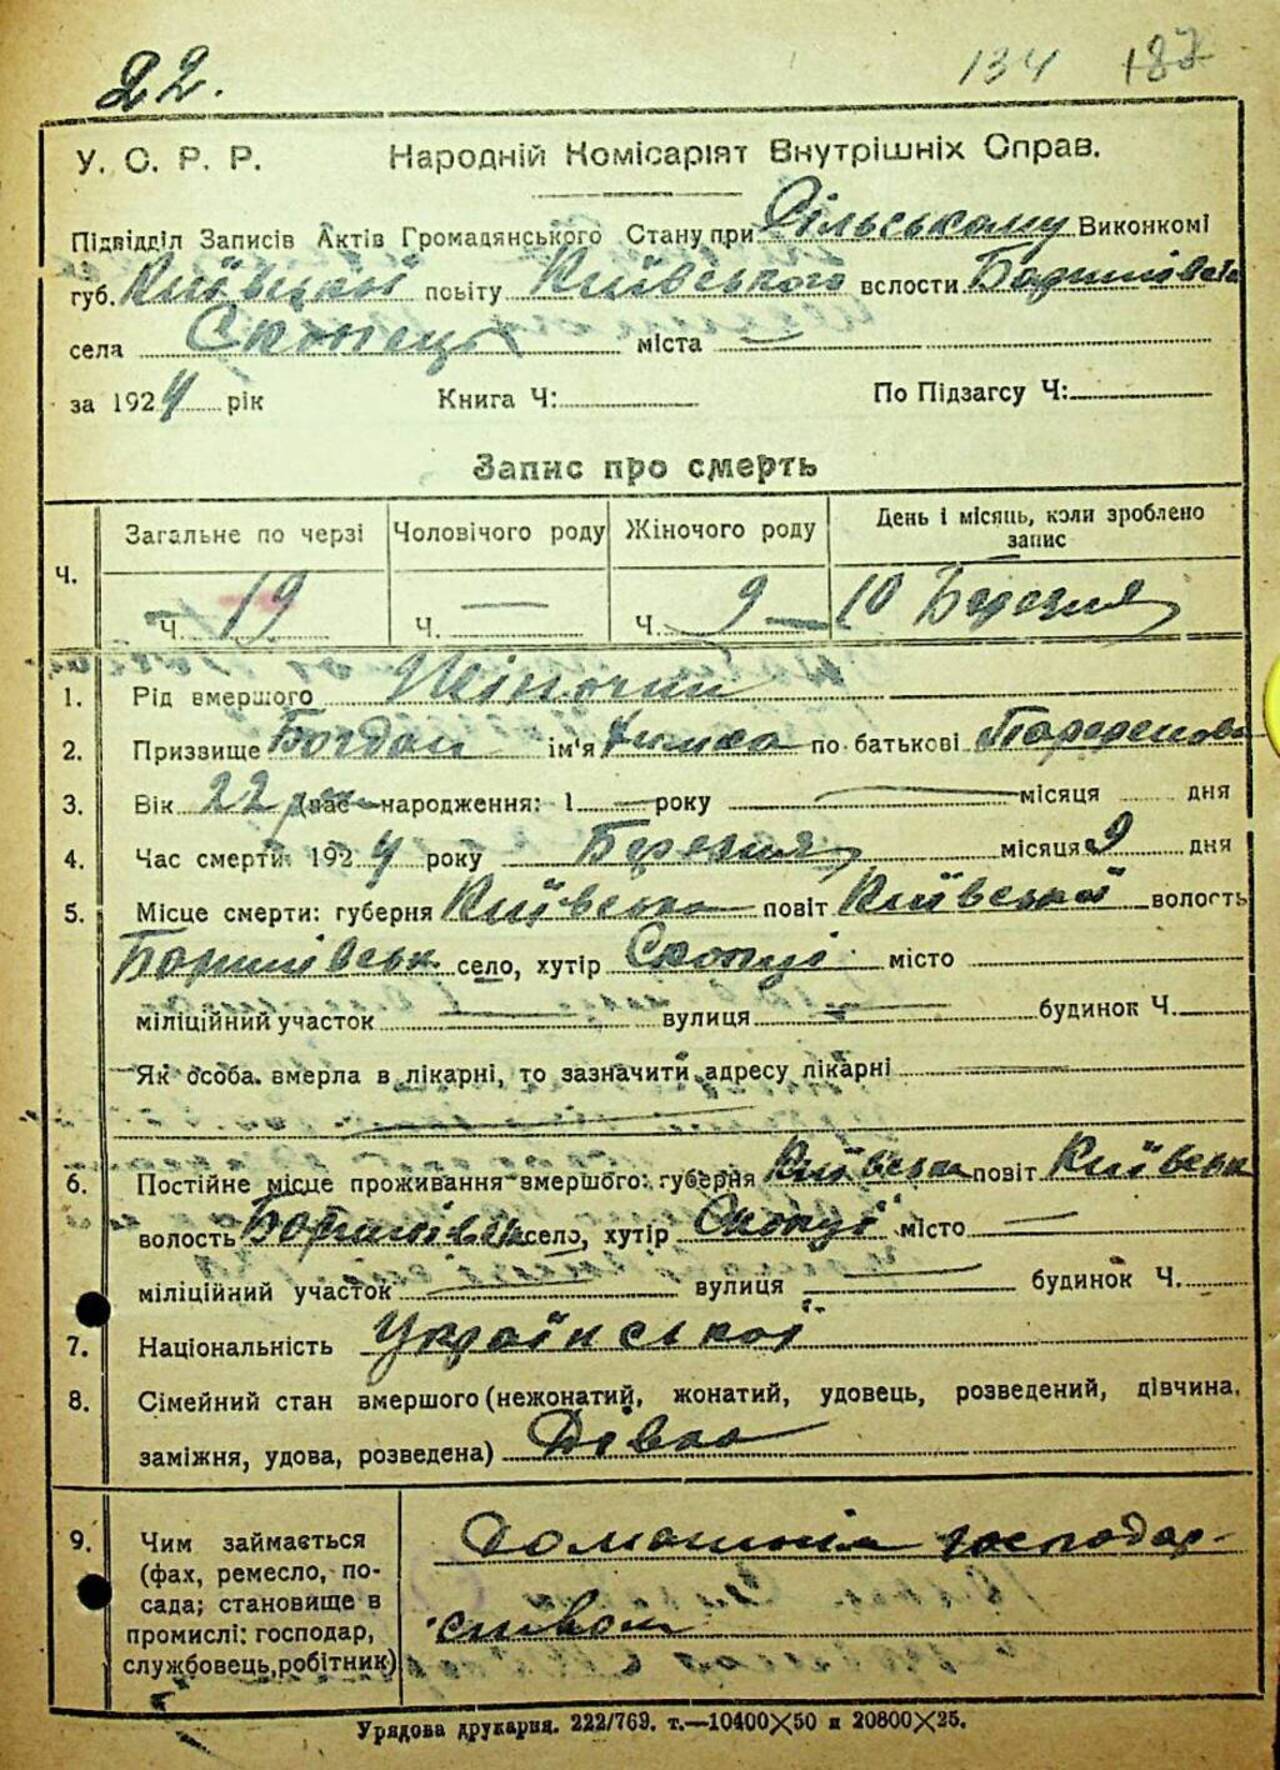 22.
134 187
У. С. Р. Р. Народній Комісаріят Внутрішніх Справ.
Підвідділ Записів Актів Громадянського Стану при Сільському Виконкомі
губ. Київської повіту Київського вслости
села міста —
за 1924 рік Книга Ч: По Підзагсу Ч:
Запис про смерть
Загальне по черзі Чоловічого роду Жіночого роду День і місяць, коли зроблено запис
Ч. Ч. 19 Ч. — Ч. 9 10 Березня
1. Рід вмершого Жіночий
2. Призвище Богдан ім'я по батькові
3. Вік 22 Час народження: 1 — року — місяця дня
4. Час смерти: 1924 року Березня місяця 9 дня
5. Місце смерти: губерня Київська повіт Київський волость
село, хутір місто
міліційний участок — вулиця — будинок Ч.
Як особа вмерла в лікарні, то зазначити адресу лікарні —
6. Постійне місце проживання вмершого: губерня Київськ повіт Київськ
волость село, хутір місто —
міліційний участок — вулиця — будинок Ч.
7. Національність Української
8. Сімейний стан вмершого (нежонатий, жонатий, удовець, розведений, дівчина,
заміжня, удова, розведена) Дівка
9. Чим займається Домашнім господар-
(фах, ремесло, по-
сада; становище в
промислі: господар, ством
службовець, робітник)
Урядова друкарня. 222/769. т.—10400×50 и 20800×25.